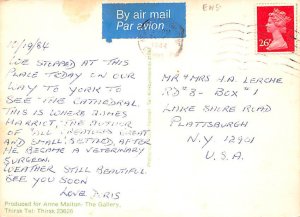 By air mail
Par avion
EHS
26P
10/19/84
WE STOPPED AT THIS
PLACE TODAY ON OUR
WAY TO YORK TO
SEE THE CATHEDRAL
THIS IS WHERE JAMES
HARRIOT, THE AUTHOR
OF "ALL CREATURES GREAT
AND SMALL" SETTLED, AFTER
HE BECAME A VETERINARY
SURGEON.
WEATHER STILL BEAUTIFUL
SEE YOU SOON
LOVE DORIS
MR + MRS J.A. LEROHE
RD #3 - BOX #1
LAKE SHORE ROAD
PLATTSBURGH
N.Y. 12901
U.S.A.
Produced for Anne Mallon: The Gallery,
Thirsk Tel: Thirsk 23626